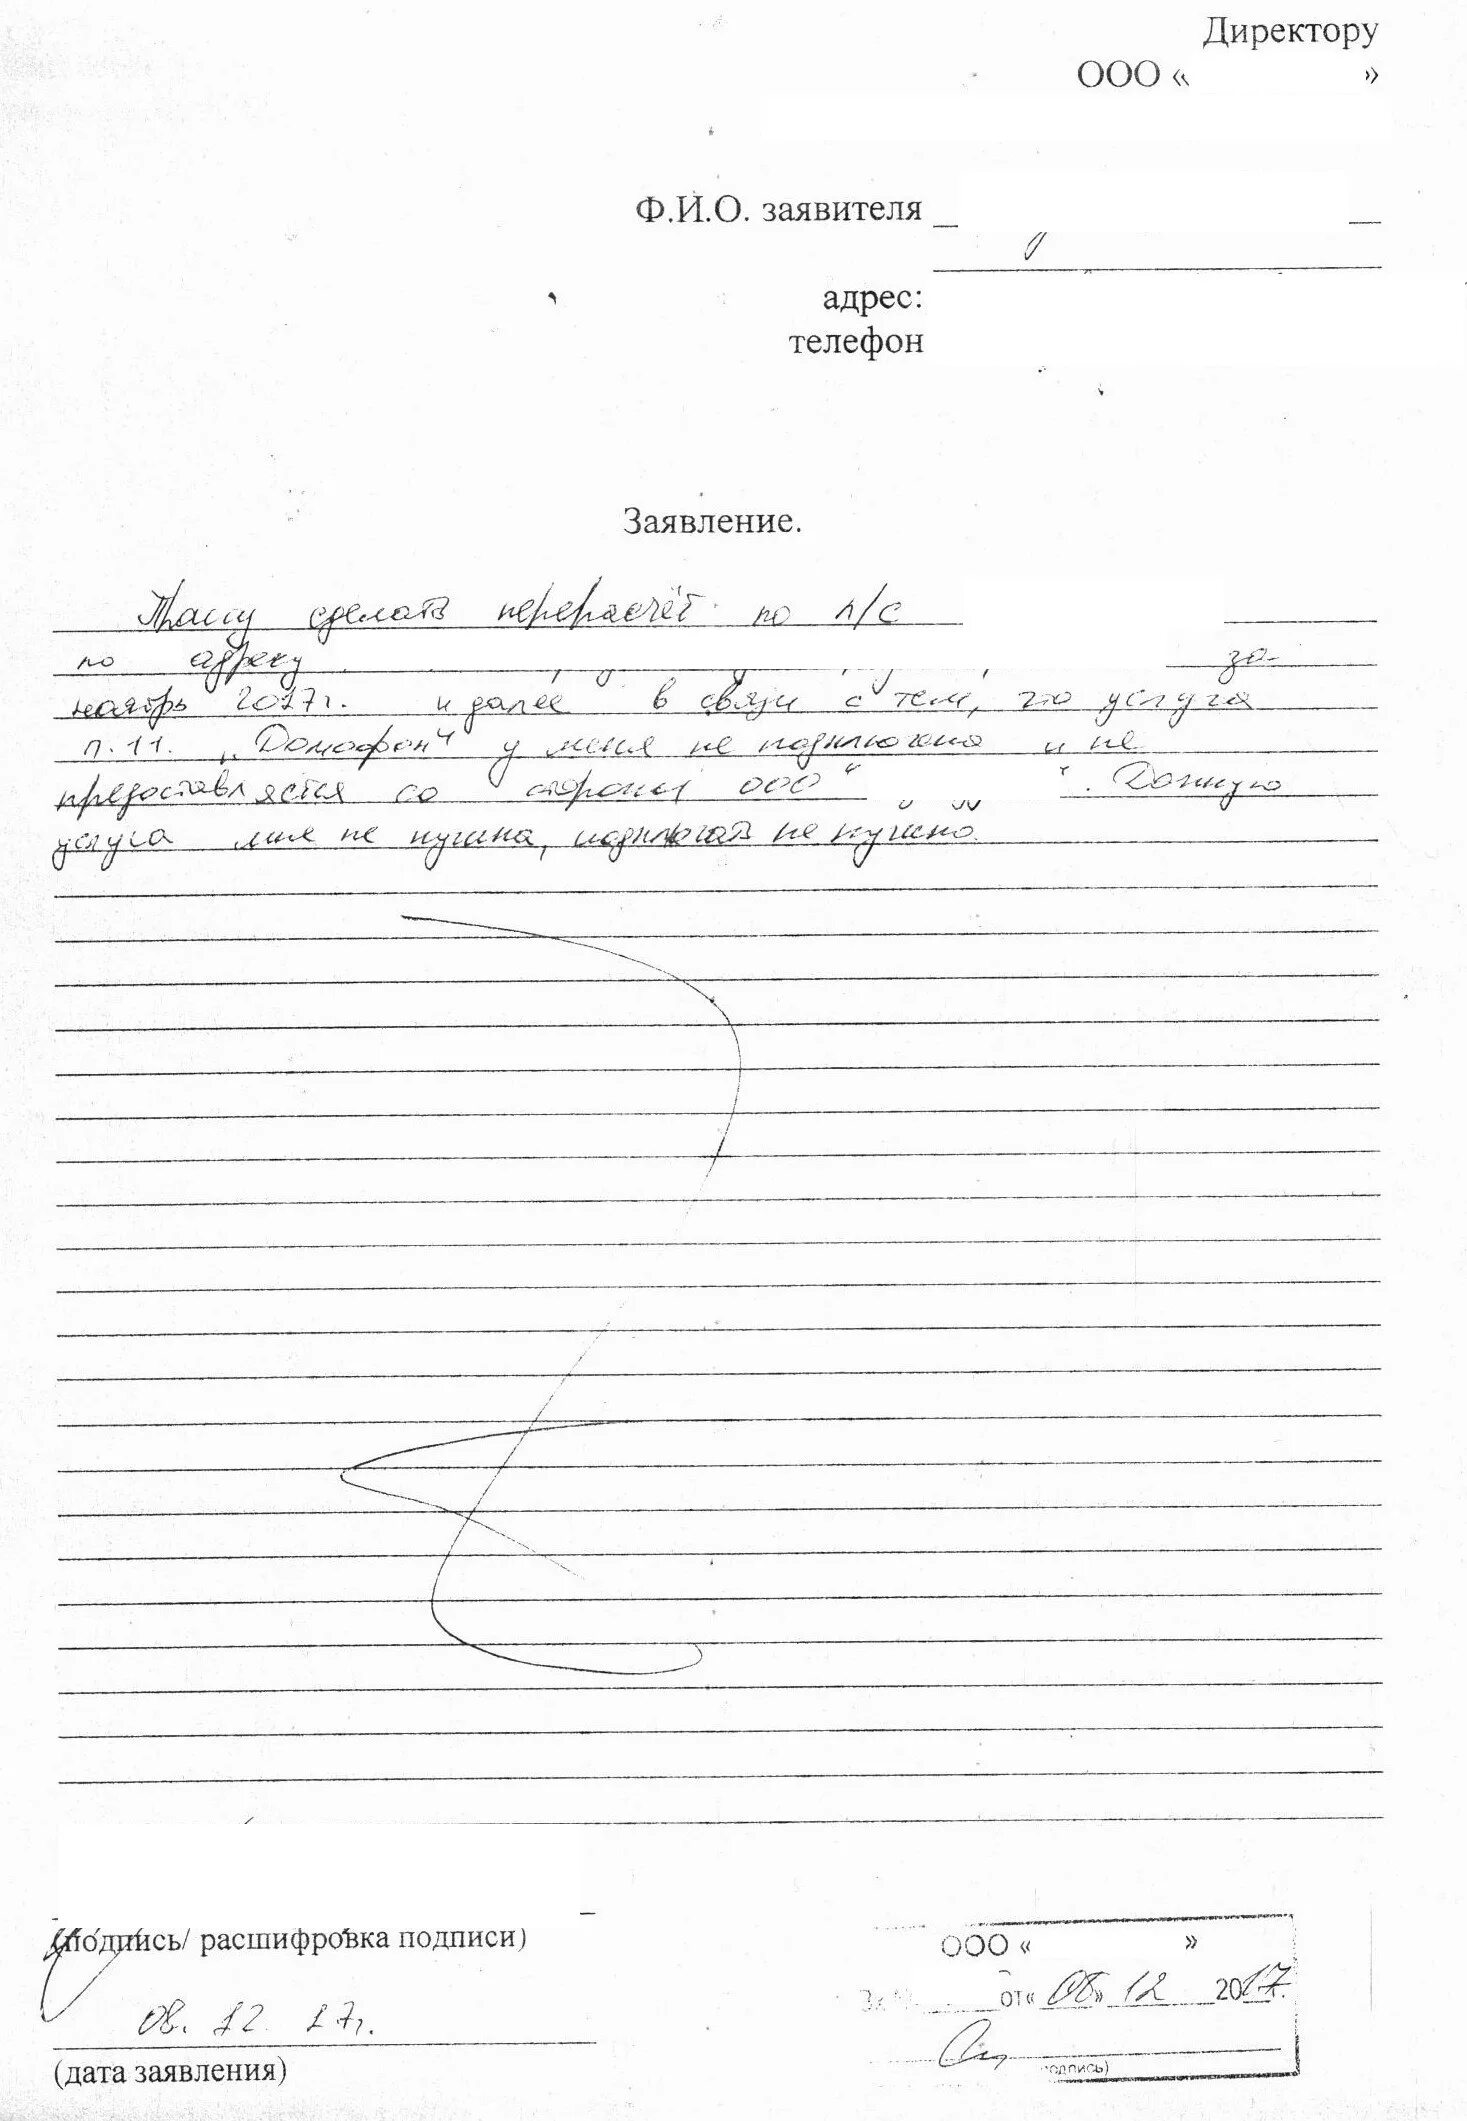 Директору
ООО « »
Ф.И.О. заявителя
адрес:
телефон
Заявление.
Прошу сделать перерасчёт по л/с
по адресу за
ноябрь 2017г. и далее в связи с тем, что услуга
п.11. „Домофон“ у меня не подключена и не
предоставляется со стороны ООО “ “. Данную
услуга мне не нужна, подключать не нужно.
(подпись/ расшифровка подписи)
08.12.17г.
(дата заявления)
ООО « »
от« 08 » 12 2017г.
подпись)